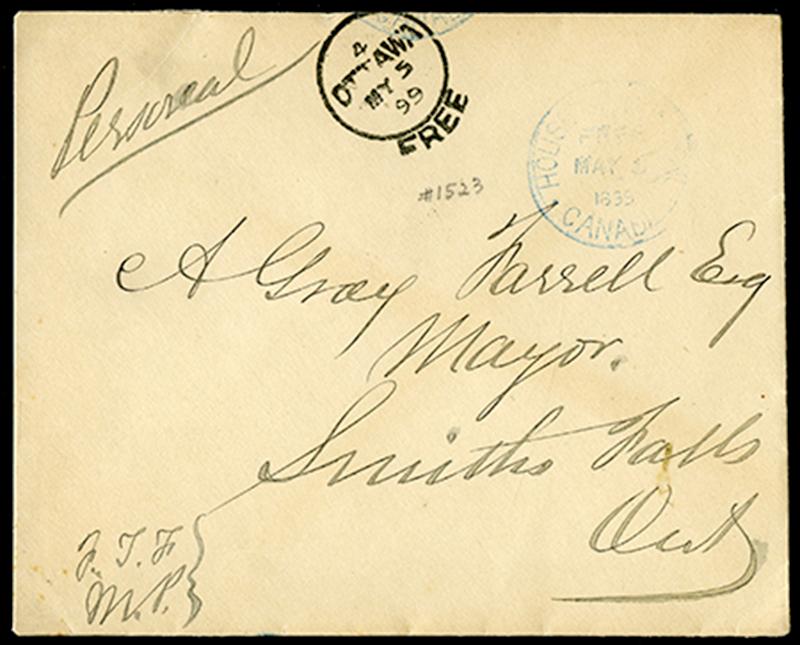 Personal
4
OTTAWA
MY 5
99
FREE
#1523
FREE
MAY 5
1899
CANADA
A Gray Farrell Esq
Mayor.
Smiths Falls
Ont
F. T. F
M.P.